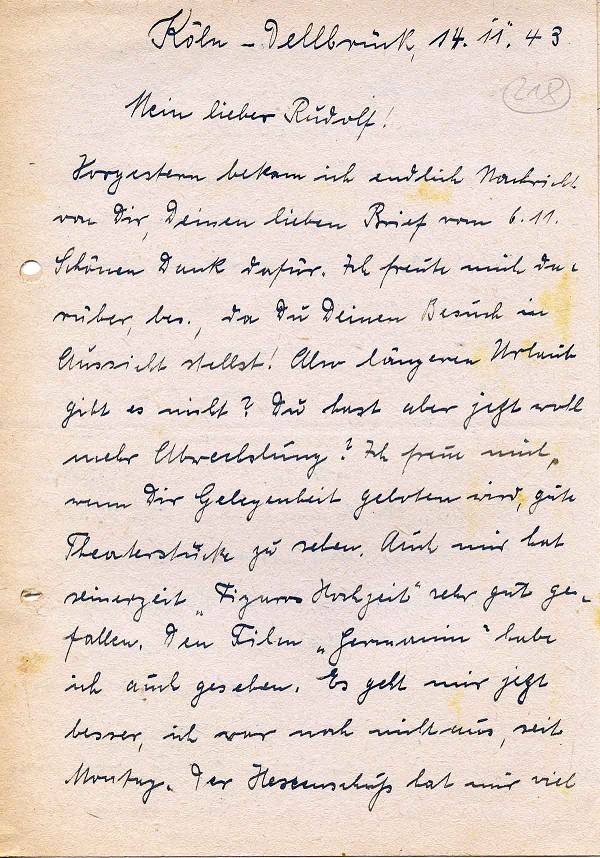 Köln-Dellbrück, 14.11.43
218
Mein lieber Rudolf!
Vorgestern bekam ich endlich Nachricht
von Dir, Deinen lieben Brief vom 6.11.
Schönen Dank dafür. Ich freute mich da-
rüber, bes., da Du Deinen Besuch in
Aussicht stellst! Also längeren Urlaub
gibt es nicht? Du hast aber jetzt wohl
mehr Abwechslung? Ich freue mich,
wenn Dir Gelegenheit geboten wird, gute
Theaterstücke zu sehen. Auch mir hat
seinerzeit „Figaros Hochzeit" sehr gut ge-
fallen. Den Film „Germanin" habe
ich auch gesehen. Es geht mir jetzt
besser, ich war noch nicht aus, seit
Montag. Der Hexenschuß hat mir viel